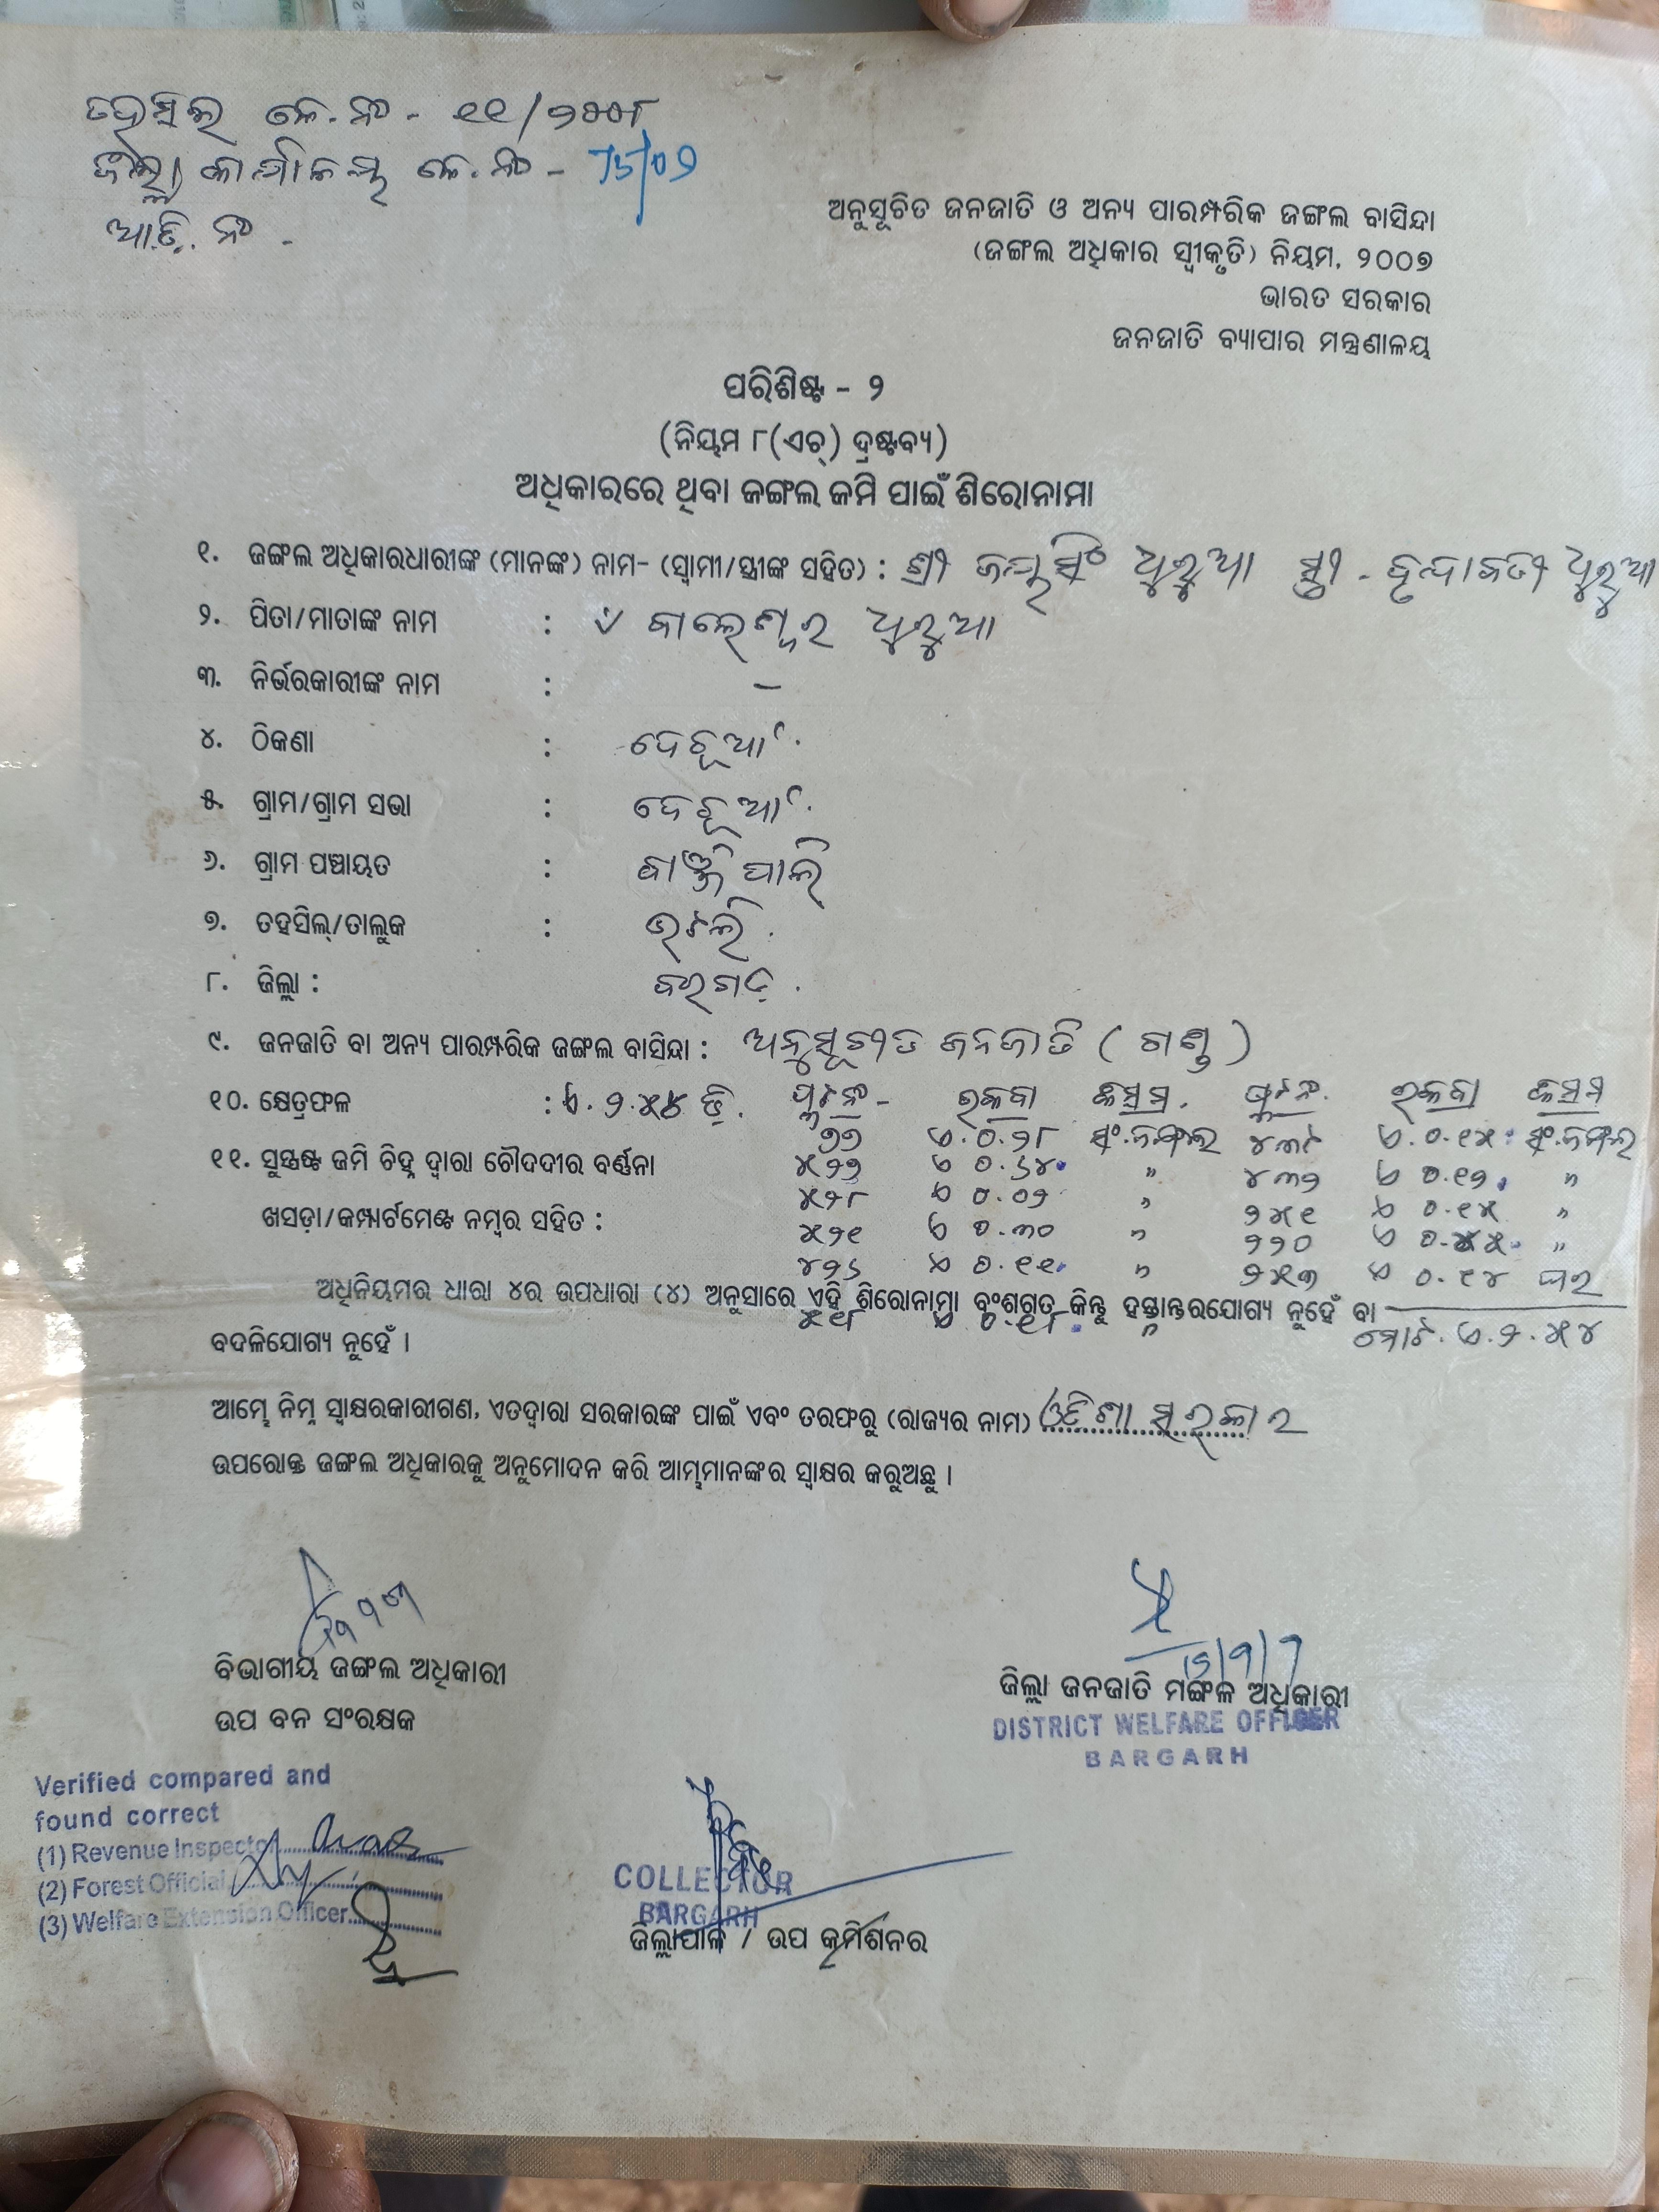 ତହସିଲ କେ.ନଂ - ୧୧/୨୦୦୮
ଜିଲ୍ଲା କାର୍ଯ୍ୟାଳୟ କେ.ନଂ - 75/02
ଆ.ଡି. ନଂ -
ଅନୁସୂଚିତ ଜନଜାତି ଓ ଅନ୍ୟ ପାରମ୍ପରିକ ଜଙ୍ଗଲ ବାସିନ୍ଦା
(ଜଙ୍ଗଲ ଅଧିକାର ସ୍ୱୀକୃତି) ନିୟମ, ୨୦୦୭
ଭାରତ ସରକାର
ଜନଜାତି ବ୍ୟାପାର ମନ୍ତ୍ରଣାଳୟ
ପରିଶିଷ୍ଟ - ୨
(ନିୟମ ୮(ଏଚ୍) ଦ୍ରଷ୍ଟବ୍ୟ)
ଅଧିକାରରେ ଥିବା ଜଙ୍ଗଲ ଜମି ପାଇଁ ଶିରୋନାମା
୧. ଜଙ୍ଗଲ ଅଧିକାରଧାରୀଙ୍କ (ମାନଙ୍କ) ନାମ- (ସ୍ୱାମୀ/ସ୍ତ୍ରୀଙ୍କ ସହିତ) : ଶ୍ରୀ ଜୟସିଂ ଧୁରୁଆ ସ୍ତ୍ରୀ - ବୃନ୍ଦାବତୀ ଧୁରୁଆ
୨. ପିତା/ମାତାଙ୍କ ନାମ : ବାଲେଶ୍ୱର ଧୁରୁଆ
୩. ନିର୍ଭରକାରୀଙ୍କ ନାମ : -
୪. ଠିକଣା : ଦେଚୂଆଁ.
୫. ଗ୍ରାମ/ଗ୍ରାମ ସଭା : ଦେଚୂଆଁ.
୬. ଗ୍ରାମ ପଞ୍ଚାୟତ : କାଞ୍ଜିପାଲି
୭. ତହସିଲ୍/ତାଲୁକ : ଭଟଲି.
୮. ଜିଲ୍ଲା : ବରଗଡ଼.
୯. ଜନଜାତି ବା ଅନ୍ୟ ପାରମ୍ପରିକ ଜଙ୍ଗଲ ବାସିନ୍ଦା : ଅନୁସୂଚୀତ ଜନଜାତି (ଗଣ୍ଡ)
୧୦. କ୍ଷେତ୍ରଫଳ : ଏ. ୨.୫୪ ଡି. ପ୍ଲଟନଂ - ରକବା କିସମ. ପ୍ଲଟନଂ. ରକବା କିସମ
୭୭ ଏ.୦.୨୮ ସଂ.ଜଙ୍ଗଲ ୪୩୮ ଏ.୦.୧୫ ସଂ.ଜଙ୍ଗଲ
୧୧. ସୁସ୍ପଷ୍ଟ ଜମି ଚିହ୍ନ ଦ୍ୱାରା ଚୌଦଦୀର ବର୍ଣ୍ଣନା ୫୨୭ ଏ ୦.୬୪ " ୪୩୨ ଏ ୦.୧୨ "
୫୨୮ ଏ ୦.୦୨ " ୨୫୧ ଏ ୦.୧୫ "
ଖସଡ଼ା/କମ୍ପାର୍ଟମେଣ୍ଟ ନମ୍ବର ସହିତ : ୫୨୧ ଏ ୦.୩୦ " ୨୨୦ ଏ "
୪୨୬ ଏ ୦.୧୧ " ୨୫୩ ଏ ୦.୧୪ ଘର
ଅଧିନିୟମର ଧାରା ୪ର ଉପଧାରା (୪) ଅନୁସାରେ ଏହି ଶିରୋନାମା ବଂଶଗତ କିନ୍ତୁ ହସ୍ତାନ୍ତରଯୋଗ୍ୟ ନୁହେଁ ବା
୫୧୮ ଏ ୦.୧୮ " ମୋଟ. ଏ.୨.୫୪
ବଦଳିଯୋଗ୍ୟ ନୁହେଁ ।
ଆମ୍ଭେ ନିମ୍ନ ସ୍ୱାକ୍ଷରକାରୀଗଣ, ଏତଦ୍ୱାରା ସରକାରଙ୍କ ପାଇଁ ଏବଂ ତରଫରୁ (ରାଜ୍ୟର ନାମ) ଓଡିଶା ସରକାର
ଉପରୋକ୍ତ ଜଙ୍ଗଲ ଅଧିକାରକୁ ଅନୁମୋଦନ କରି ଆମ୍ଭମାନଙ୍କର ସ୍ୱାକ୍ଷର କରୁଅଛୁ ।
ବିଭାଗୀୟ ଜଙ୍ଗଲ ଅଧିକାରୀ
ଉପ ବନ ସଂରକ୍ଷକ
ଜିଲ୍ଲା ଜନଜାତି ମଙ୍ଗଳ ଅଧିକାରୀ
DISTRICT WELFARE OFFICER
BARGARH
Verified compared and
found correct
(1) Revenue Inspector
(2) Forest Official
(3) Welfare Extension Officer
COLLECTOR
BARGARH
ଜିଲ୍ଲାପାଳ / ଉପ କମିଶନର